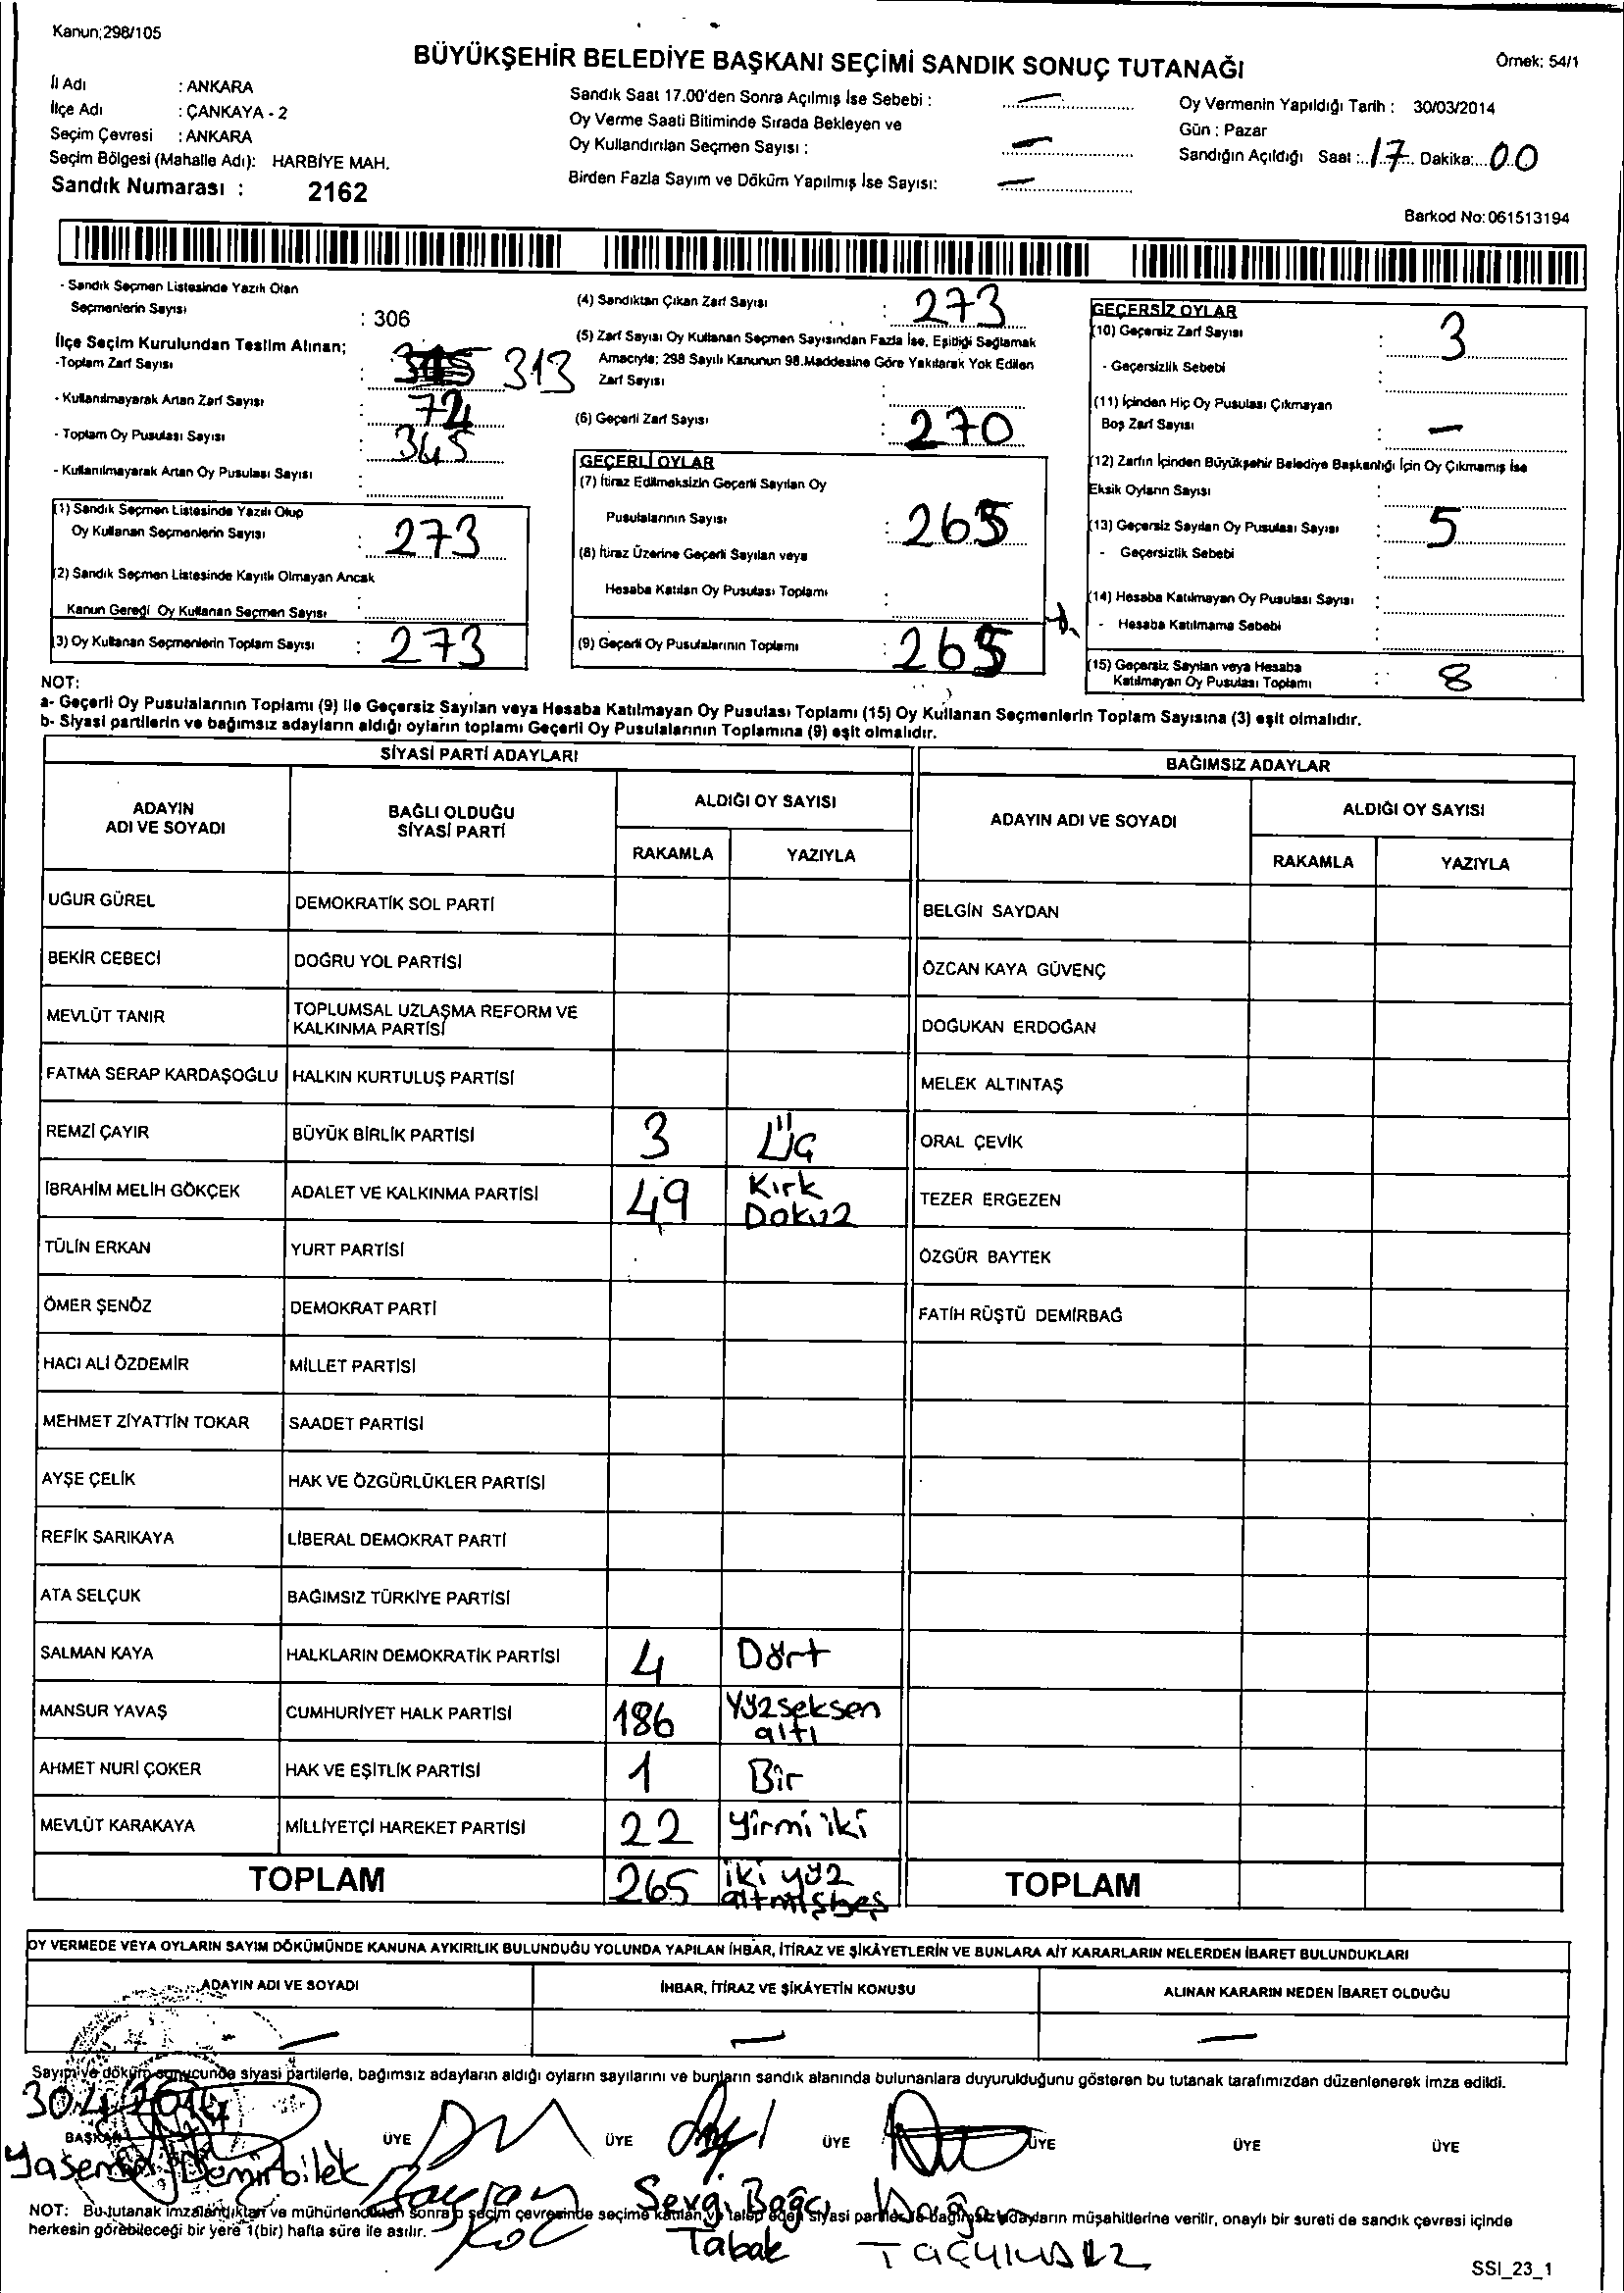 Kanun;298/105
BÜYÜKŞEHİR BELEDİYE BAŞKANI SEÇİMİ SANDIK SONUÇ TUTANAĞI
Örnek: 54/1
İl Adı : ANKARA
İlçe Adı : ÇANKAYA - 2
Seçim Çevresi : ANKARA
Seçim Bölgesi (Mahalle Adı): HARBİYE MAH.
Sandık Numarası : 2162
Sandık Saat 17.00'den Sonra Açılmış İse Sebebi : —
Oy Verme Saati Bitiminde Sırada Bekleyen ve
Oy Kullandırılan Seçmen Sayısı : —
Birden Fazla Sayım ve Döküm Yapılmış İse Sayısı: —
Oy Vermenin Yapıldığı Tarih : 30/03/2014
Gün : Pazar
Sandığın Açıldığı Saat : 17 Dakika: 00
Barkod No: 061513194
- Sandık Seçmen Listesinde Yazılı Olan
Seçmenlerin Sayısı : 306
İlçe Seçim Kurulundan Teslim Alınan;
-Toplam Zarf Sayısı : 313
- Kullanılmayarak Artan Zarf Sayısı : 72
- Toplam Oy Pusulası Sayısı : 345
- Kullanılmayarak Artan Oy Pusulası Sayısı :
(1) Sandık Seçmen Listesinde Yazılı Olup
Oy Kullanan Seçmenlerin Sayısı : 273
(2) Sandık Seçmen Listesinde Kayıtlı Olmayan Ancak
Kanun Gereği Oy Kullanan Seçmen Sayısı :
(3) Oy Kullanan Seçmenlerin Toplam Sayısı : 273
(4) Sandıktan Çıkan Zarf Sayısı : 273
(5) Zarf Sayısı Oy Kullanan Seçmen Sayısından Fazla İse, Eşitliği Sağlamak
Amacıyla; 298 Sayılı Kanunun 98.Maddesine Göre Yakılarak Yok Edilen
Zarf Sayısı :
(6) Geçerli Zarf Sayısı : 270
GEÇERLİ OYLAR
(7) İtiraz Edilmeksizin Geçerli Sayılan Oy
Pusulalarının Sayısı : 265
(8) İtiraz Üzerine Geçerli Sayılan veya
Hesaba Katılan Oy Pusulası Toplamı :
(9) Geçerli Oy Pusulalarının Toplamı : 265
GEÇERSİZ OYLAR
(10) Geçersiz Zarf Sayısı : 3
- Geçersizlik Sebebi :
(11) İçinden Hiç Oy Pusulası Çıkmayan
Boş Zarf Sayısı : —
(12) Zarfın İçinden Büyükşehir Belediye Başkanlığı İçin Oy Çıkmamış İse
Eksik Oyların Sayısı :
(13) Geçersiz Sayılan Oy Pusulası Sayısı : 5
- Geçersizlik Sebebi :
(14) Hesaba Katılmayan Oy Pusulası Sayısı :
- Hesaba Katılmama Sebebi :
(15) Geçersiz Sayılan veya Hesaba
Katılmayan Oy Pusulası Toplamı : 8
NOT:
a- Geçerli Oy Pusulalarının Toplamı (9) ile Geçersiz Sayılan veya Hesaba Katılmayan Oy Pusulası Toplamı (15) Oy Kullanan Seçmenlerin Toplam Sayısına (3) eşit olmalıdır.
b- Siyasi partilerin ve bağımsız adayların aldığı oyların toplamı Geçerli Oy Pusulalarının Toplamına (9) eşit olmalıdır.
SİYASİ PARTİ ADAYLARI
ADAYIN ADI VE SOYADI
BAĞLI OLDUĞU SİYASİ PARTİ
ALDIĞI OY SAYISI
RAKAMLA YAZIYLA
UĞUR GÜREL DEMOKRATİK SOL PARTİ
BEKİR CEBECİ DOĞRU YOL PARTİSİ
MEVLÜT TANIR TOPLUMSAL UZLAŞMA REFORM VE KALKINMA PARTİSİ
FATMA SERAP KARDAŞOĞLU HALKIN KURTULUŞ PARTİSİ
REMZİ ÇAYIR BÜYÜK BİRLİK PARTİSİ 3 Üç
İBRAHİM MELİH GÖKÇEK ADALET VE KALKINMA PARTİSİ 49 Kırk Dokuz
TÜLİN ERKAN YURT PARTİSİ
ÖMER ŞENÖZ DEMOKRAT PARTİ
HACI ALİ ÖZDEMİR MİLLET PARTİSİ
MEHMET ZİYATTİN TOKAR SAADET PARTİSİ
AYŞE ÇELİK HAK VE ÖZGÜRLÜKLER PARTİSİ
REFİK SARIKAYA LİBERAL DEMOKRAT PARTİ
ATA SELÇUK BAĞIMSIZ TÜRKİYE PARTİSİ
SALMAN KAYA HALKLARIN DEMOKRATİK PARTİSİ 4 Dört
MANSUR YAVAŞ CUMHURİYET HALK PARTİSİ 186 Yüzseksen altı
AHMET NURİ ÇOKER HAK VE EŞİTLİK PARTİSİ 1 Bir
MEVLÜT KARAKAYA MİLLİYETÇİ HAREKET PARTİSİ 22 yirmi iki
TOPLAM 265 iki yüz altmışbeş
BAĞIMSIZ ADAYLAR
ADAYIN ADI VE SOYADI
ALDIĞI OY SAYISI
RAKAMLA YAZIYLA
BELGİN SAYDAN
ÖZCAN KAYA GÜVENÇ
DOĞUKAN ERDOĞAN
MELEK ALTINTAŞ
ORAL ÇEVİK
TEZER ERGEZEN
ÖZGÜR BAYTEK
FATİH RÜŞTÜ DEMİRBAĞ
TOPLAM
OY VERMEDE VEYA OYLARIN SAYIM DÖKÜMÜNDE KANUNA AYKIRILIK BULUNDUĞU YOLUNDA YAPILAN İHBAR, İTİRAZ VE ŞİKÂYETLERİN VE BUNLARA AİT KARARLARIN NELERDEN İBARET BULUNDUKLARI
ADAYIN ADI VE SOYADI İHBAR, İTİRAZ VE ŞİKÂYETİN KONUSU ALINAN KARARIN NEDEN İBARET OLDUĞU
— — —
Sayım ve döküm sonucunda siyasi partilerle, bağımsız adayların aldığı oyların sayılarını ve bunların sandık alanında bulunanlara duyurulduğunu gösteren bu tutanak tarafımızdan düzenlenerek imza edildi.
BAŞKAN ÜYE ÜYE ÜYE ÜYE ÜYE ÜYE
Demirbilek
Koç
Sevgi Bağcı Tabak
Doğan
NOT: Bu tutanak imzalandıktan ve mühürlendikten sonra o seçim çevresinde seçime katılan ve talep eden siyasi partiler ile bağımsız adayların müşahitlerine verilir, onaylı bir sureti de sandık çevresi içinde
herkesin görebileceği bir yere 1(bir) hafta süre ile asılır.
SSI_23_1